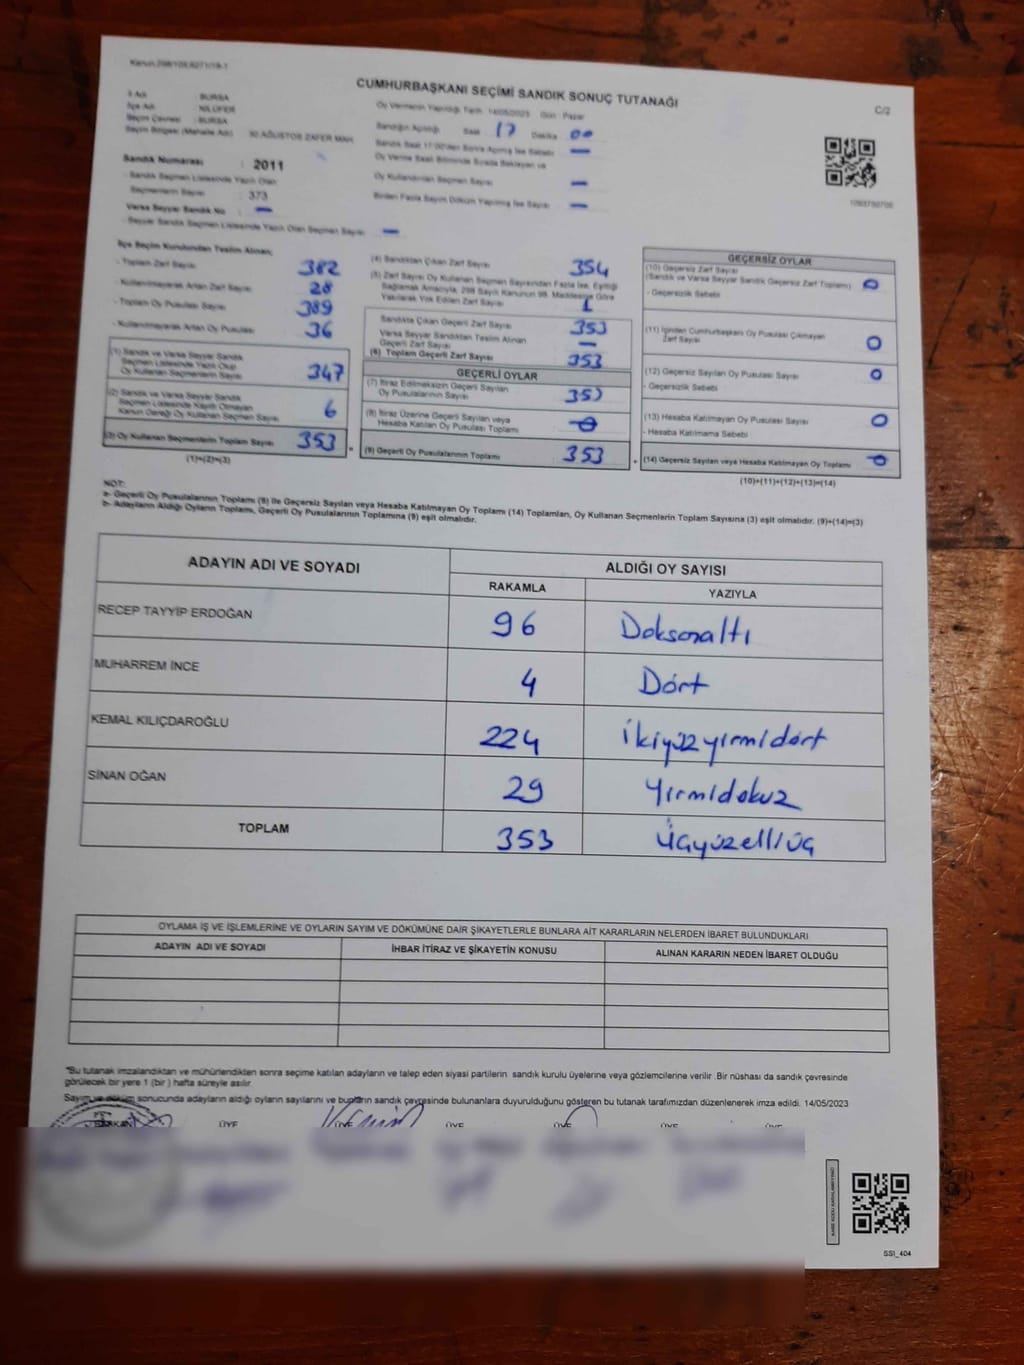 CUMHURBAŞKANI SEÇİMİ SANDIK SONUÇ TUTANAĞI
C/2
İl Adı : BURSA
İlçe Adı : NİLÜFER
Seçim Çevresi : BURSA
Seçim Bölgesi (Mahalle Adı) 30 AĞUSTOS ZAFER MAH
Oy Vermenin Yapıldığı Tarih 14/05/2023 Gün : Pazar
Sandığın Açıldığı Saat 17 Dakika 00
Sandık Saat 17:00'den Sonra Açılmış İse Sebebi —
Oy Verme Saati Bitiminde Sırada Bekleyen ve
Oy Kullandırılan Seçmen Sayısı —
Birden Fazla Sayım Döküm Yapılmış İse Sayısı —
Sandık Numarası : 2011
- Sandık Seçmen Listesinde Yazılı Olan
Seçmenlerin Sayısı : 373
Varsa Seyyar Sandık No : —
- Seyyar Sandık Seçmen Listesinde Yazılı Olan Seçmen Sayısı —
İlçe Seçim Kurulundan Teslim Alınan;
- Toplam Zarf Sayısı 382
- Kullanılmayarak Artan Zarf Sayısı 28
- Toplam Oy Pusulası Sayısı 389
- Kullanılmayarak Artan Oy Pusulası 36
(1) Sandık ve Varsa Seyyar Sandık
Seçmen Listesinde Yazılı Olup
Oy Kullanan Seçmenlerin Sayısı 347
(2) Sandık ve Varsa Seyyar Sandık
Seçmen Listesinde Kayıtlı Olmayan
Kanun Gereği Oy Kullanan Seçmen Sayısı 6
(3) Oy Kullanan Seçmenlerin Toplam Sayısı 353
(1)+(2)=(3)
(4) Sandıktan Çıkan Zarf Sayısı 354
(5) Zarf Sayısı Oy Kullanan Seçmen Sayısından Fazla İse, Eşitliği
Sağlamak Amacıyla, 298 Sayılı Kanunun 98. Maddesine Göre
Yakılarak Yok Edilen Zarf Sayısı 1
Sandıkta Çıkan Geçerli Zarf Sayısı 353
Varsa Seyyar Sandıktan Teslim Alınan
Geçerli Zarf Sayısı —
(6) Toplam Geçerli Zarf Sayısı 353
GEÇERLİ OYLAR
(7) İtiraz Edilmeksizin Geçerli Sayılan
Oy Pusulalarının Sayısı 353
(8) İtiraz Üzerine Geçerli Sayılan veya
Hesaba Katılan Oy Pusulası Toplamı 0
(9) Geçerli Oy Pusulalarının Toplamı 353
GEÇERSİZ OYLAR
(10) Geçersiz Zarf Sayısı
(Sandık ve Varsa Seyyar Sandık Geçersiz Zarf Toplamı) 0
- Geçersizlik Sebebi
(11) İçinden Cumhurbaşkanı Oy Pusulası Çıkmayan
Zarf Sayısı 0
(12) Geçersiz Sayılan Oy Pusulası Sayısı 0
- Geçersizlik Sebebi
(13) Hesaba Katılmayan Oy Pusulası Sayısı 0
- Hesaba Katılmama Sebebi
(14) Geçersiz Sayılan veya Hesaba Katılmayan Oy Toplamı 0
(10)+(11)+(12)+(13)=(14)
NOT:
a- Geçerli Oy Pusulalarının Toplamı (9) ile Geçersiz Sayılan veya Hesaba Katılmayan Oy Toplamı (14) Toplamları, Oy Kullanan Seçmenlerin Toplam Sayısına (3) eşit olmalıdır. (9)+(14)=(3)
b- Adayların Aldığı Oyların Toplamı, Geçerli Oy Pusulalarının Toplamına (9) eşit olmalıdır.
ADAYIN ADI VE SOYADI
ALDIĞI OY SAYISI
RAKAMLA YAZIYLA
RECEP TAYYİP ERDOĞAN 96 Doksanaltı
MUHARREM İNCE 4 Dört
KEMAL KILIÇDAROĞLU 224 İkiyüzyirmidört
SİNAN OĞAN 29 Yirmidokuz
TOPLAM 353 Üçyüzelliüç
OYLAMA İŞ VE İŞLEMLERİNE VE OYLARIN SAYIM VE DÖKÜMÜNE DAİR ŞİKAYETLERLE BUNLARA AİT KARARLARIN NELERDEN İBARET BULUNDUKLARI
ADAYIN ADI VE SOYADI İHBAR İTİRAZ VE ŞİKAYETİN KONUSU ALINAN KARARIN NEDEN İBARET OLDUĞU
*Bu tutanak imzalandıktan ve mühürlendikten sonra seçime katılan adayların ve talep eden siyasi partilerin sandık kurulu üyelerine veya gözlemcilerine verilir .Bir nüshası da sandık çevresinde
görülecek bir yere 1 (bir ) hafta süreyle asılır.
Sayım ve döküm sonucunda adayların aldığı oyların sayılarını ve bunların sandık çevresinde bulunanlara duyurulduğunu gösteren bu tutanak tarafımızdan düzenlenerek imza edildi. 14/05/2023
BAŞKAN ÜYE ÜYE ÜYE ÜYE ÜYE ÜYE
SSI_404